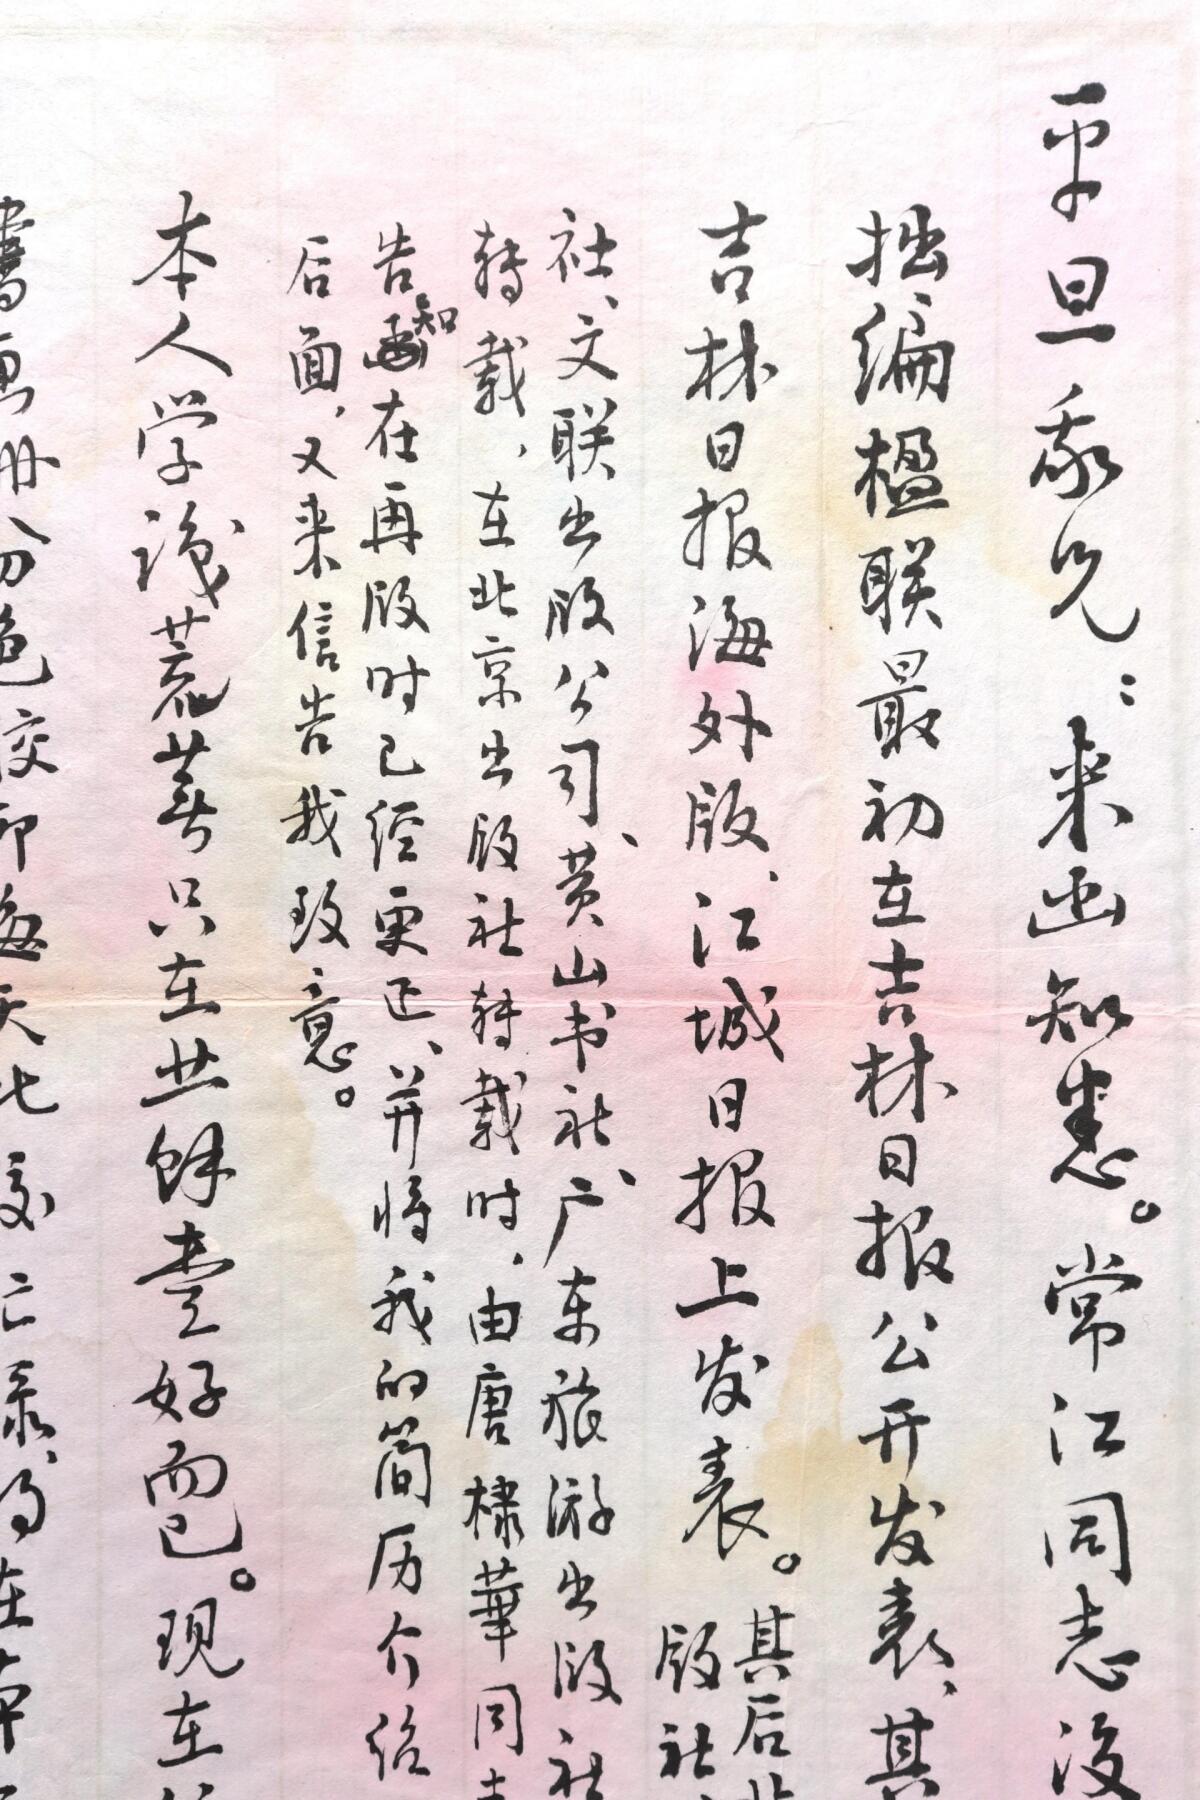 平旦我兄：来函知悉。常江同志没
拙编楹联最初在吉林日报公开发表，其
吉林日报海外版、江城日报上发表。其后
版社
社、文联出版公司、黄山书社、广东旅游出版社
转载，在北京出版社转载时，由唐棣華同志
告知在再版时已经更正、并将我的简历介绍
后面，又来信告我致意。
本人学浅荒芜只在业馀爱好而已。现在
書画册分色校印